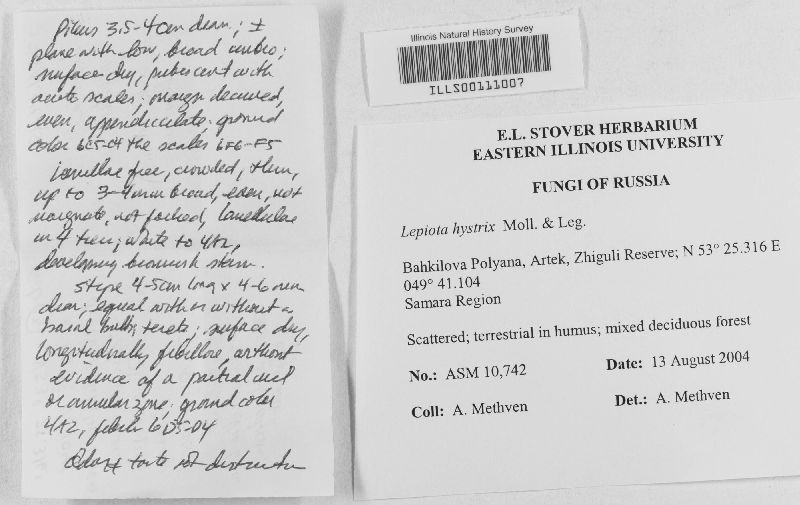 Pileus 3.5-4cm diam; ±
plane with low, broad umbo;
surface dry, pubescent with
acute scales; margin decurved,
even, appendiculate; ground
color 6C5-C4 the scales 6F6-F5
Lamellae free, crowded, thin,
up to 3-4mm broad, even, not
marginate, not forked, lamellulae
in 4 tiers; white to 4A2,
developing brownish stain.
Stipe 4-5cm long x 4-6mm
diam; equal with or without a
basal bulb; terete; surface dry,
longitudinally fibrillose, without
evidence of a partial veil
or annular zone; ground color
4A2, fibrils 6D5-D4
Odor & taste not distinctive
Illinois Natural History Survey
ILLS00111007
E.L. STOVER HERBARIUM
EASTERN ILLINOIS UNIVERSITY
FUNGI OF RUSSIA
Lepiota hystrix Moll. & Leg.
Bahkilova Polyana, Artek, Zhiguli Reserve; N 53° 25.316 E
049° 41.104
Samara Region
Scattered; terrestrial in humus; mixed deciduous forest
No.: ASM 10,742 Date: 13 August 2004
Coll: A. Methven Det.: A. Methven